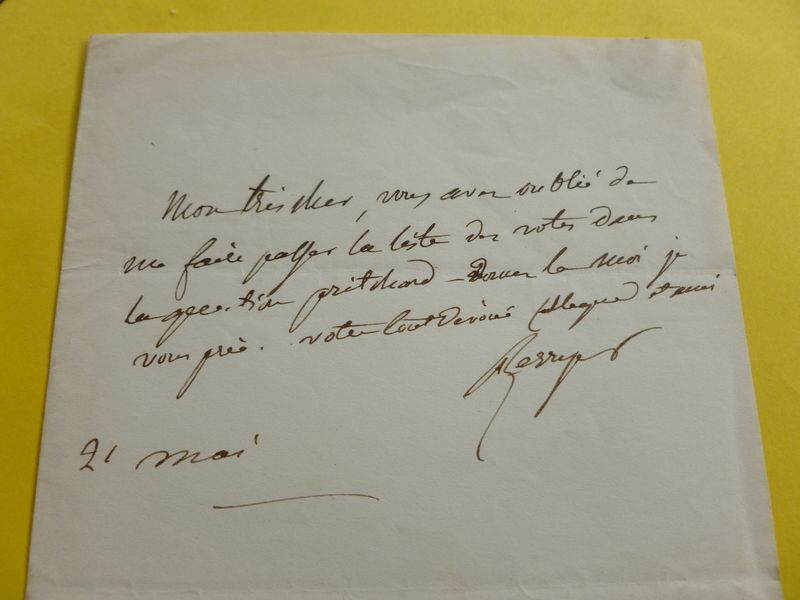 Mon très cher, vous avez oublié de
me faire passer la liste des votes dans
la question pritchard - Donnez la moi je
vous prie. votre tout dévoué collègue et ami
21 mai